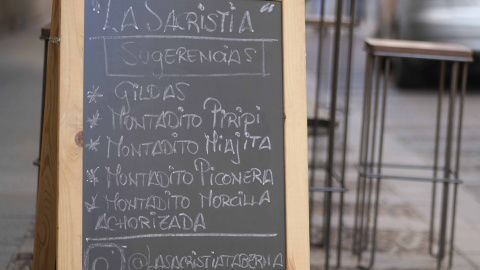 "LA SACRISTIA"
SUGERENCIAS
* GILDAS
* MONTADITO PIRIPI
* MONTADITO MIAJITA
* MONTADITO PICONERA
* MONTADITO MORCILLA
ACHORIZADA
@LASACRISTIATABERNA